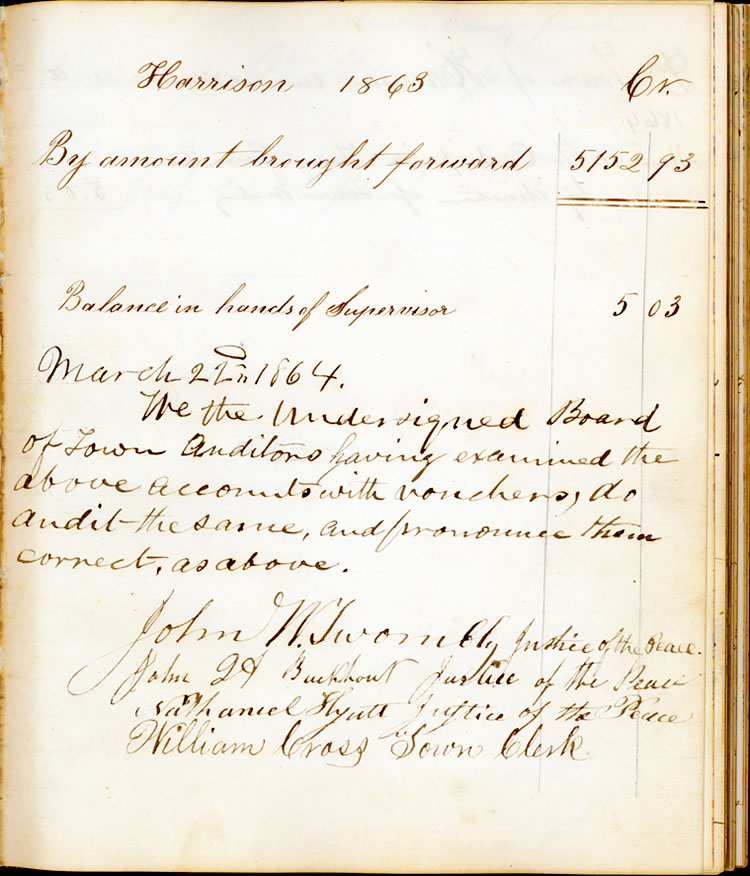 Harrison 1863 Cr.
By amount brought forward 5152 93
Balance in hands of Supervisor 5 03
March 1864.
We the Undersigned Board
of Town Auditors having examined the
above accounts with vouchers, do
audit the same, and pronounce them
correct, as above.
John W. Twombly Justice of the Peace.
John Buckhout Justice of the Peace
Nathaniel Hyatt Justice of the Peace
William Cross Town Clerk